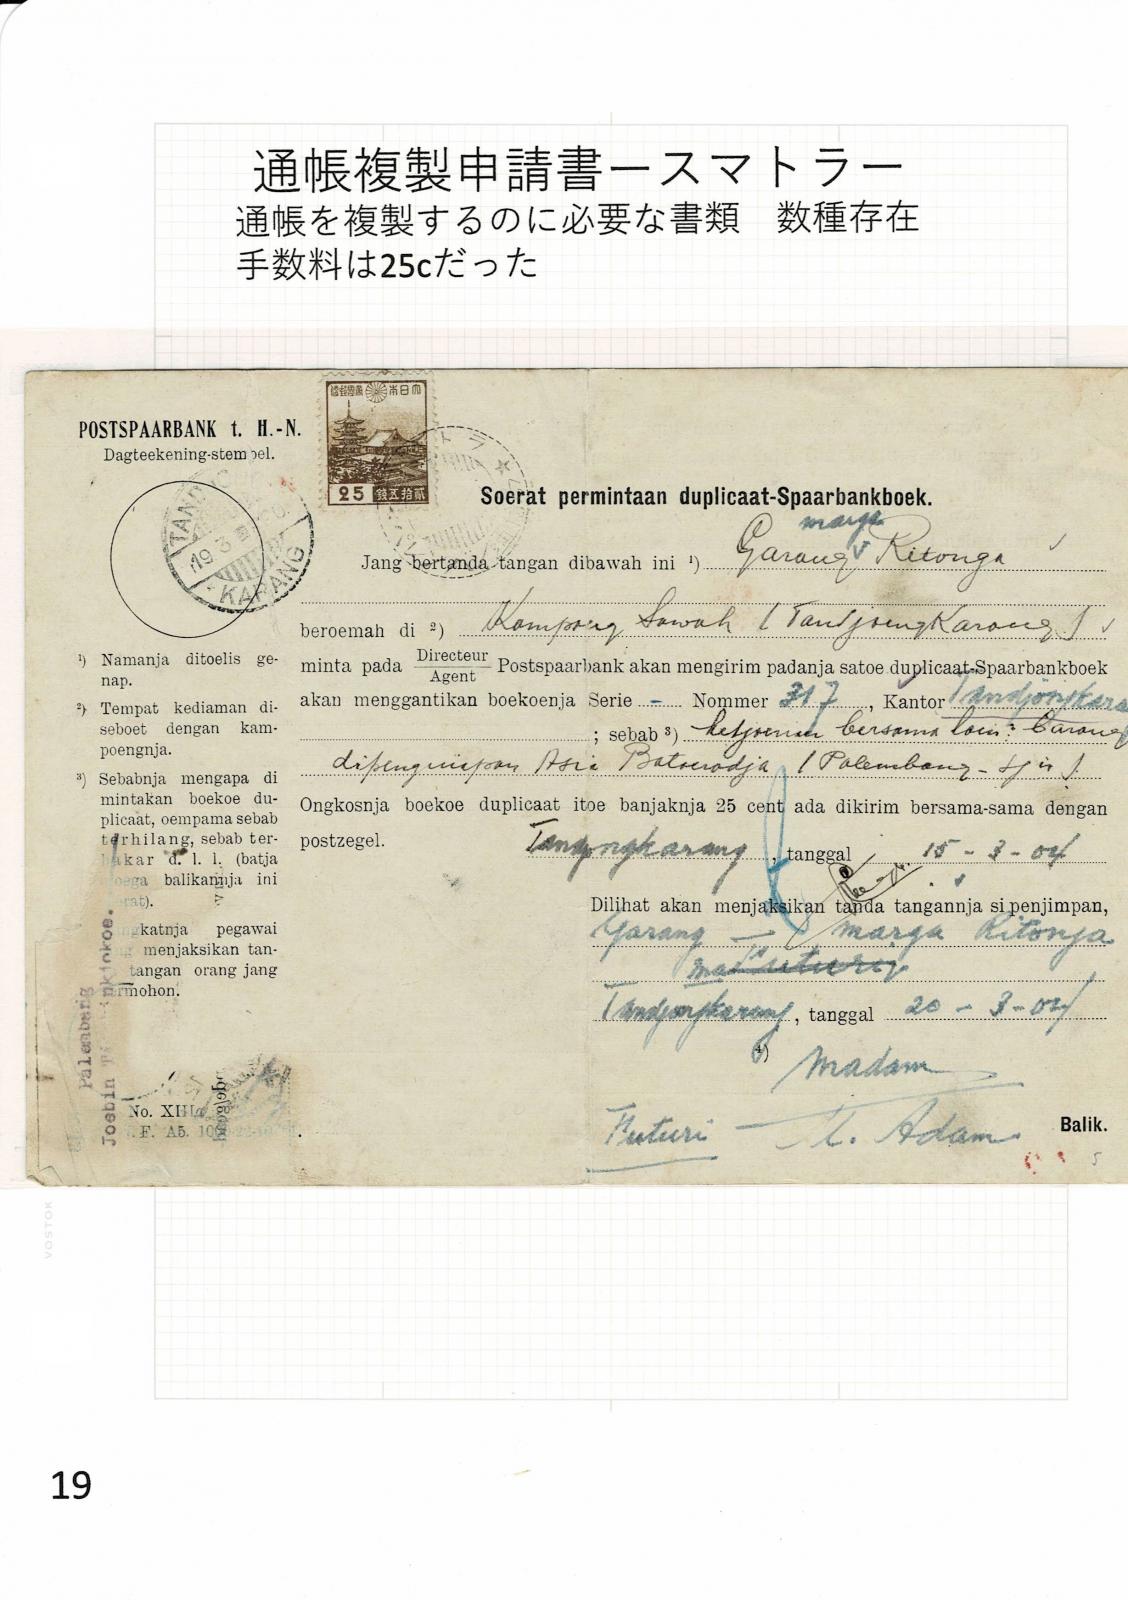 通帳複製申請書ースマトラー
通帳を複製するのに必要な書類　数種存在
手数料は25cだった
POSTSPAARBANK t. H.-N.
Dagteekening-stempel.
大日本
25 貳拾五錢
TAND
19 3
KARANG
Soerat permintaan duplicaat-Spaarbankboek.
marga
Jang bertanda tangan dibawah ini ¹) Garang Ritonga
beroemah di ²) Kampong Sawah (Tandjoengkarang)
minta pada Directeur/Agent Postspaarbank akan mengirim padanja satoe duplicaat-Spaarbankboek
akan menggantikan boekoenja Serie - Nommer 317, Kantor Tandjongkara
; sebab ³) bersama
Batoeradja (Palembang
Ongkosnja boekoe duplicaat itoe banjaknja 25 cent ada dikirim bersama-sama dengan
postzegel.
Tandjongkarang, tanggal 15-3-04
Dilihat akan menjaksikan tanda tangannja si penjimpan,
Garang - marga Ritonga
Tandjongkarang, tanggal 20-3-04
⁴)
Madam
Futuri - M. Adam
Balik.
¹) Namanja ditoelis ge-
nap.
²) Tempat kediaman di-
seboet dengan kam-
poengnja.
³) Sebabnja mengapa di
mintakan boekoe du-
plicaat, oempama sebab
terhilang, sebab ter-
bakar d. l. l. (batja
oega balikannja ini
erat).
katnja pegawai
menjaksikan tan-
tangan orang jang
ermohon.
Palembang
Joebin
No. XIII
F. A5.
VOSTOK
19